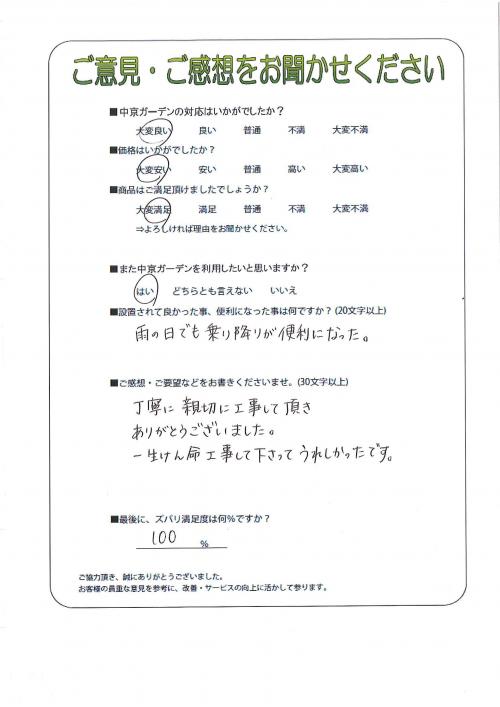 ご意見・ご感想をお聞かせください
■中京ガーデンの対応はいかがでしたか？
大変良い 良い 普通 不満 大変不満
■価格はいかがでしたか？
大変安い 安い 普通 高い 大変高い
■商品はご満足頂けましたでしょうか？
大変満足 満足 普通 不満 大変不満
⇒よろしければ理由をお聞かせください。
■また中京ガーデンを利用したいと思いますか？
はい どちらとも言えない いいえ
■設置されて良かった事、便利になった事は何ですか？(20文字以上)
雨の日でも乗り降りが便利になった。
■ご感想・ご要望などをお書きくださいませ。(30文字以上)
丁寧に親切に工事して頂き
ありがとうございました。
一生けん命工事して下さってうれしかったです。
■最後に、ズバリ満足度は何%ですか？
100 %
ご協力頂き、誠にありがとうございました。
お客様の貴重な意見を参考に、改善・サービスの向上に活かして参ります。